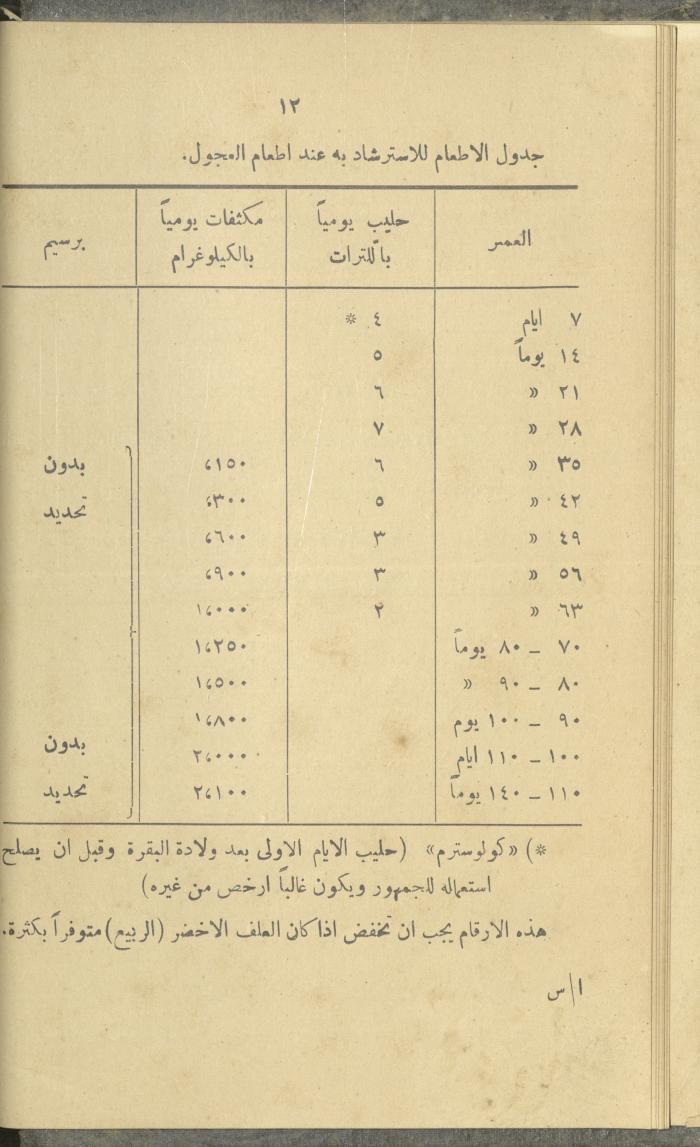 ١٢
جدول الاطعام للاسترشاد به عند اطعام العجول.
العمر حليب يومياً باللترات مكثفات يومياً بالكيلوغرام برسيم
٧ ايام ٤ *
١٤ يوماً ٥
٢١ » ٦
٢٨ » ٧
٣٥ » ٦ ،١٥٠ بدون
٤٢ » ٥ ،٣٠٠ تحديد
٤٩ » ٣ ،٦٠٠
٥٦ » ٣ ،٩٠٠
٦٣ » ٢ ١،٠٠٠
٧٠ – ٨٠ يوماً ١،٢٥٠
٨٠ – ٩٠ » ١،٥٠٠
٩٠ – ١٠٠ يوم ١،٨٠٠ بدون
١٠٠ – ١١٠ ايام ٢،٠٠٠
١١٠ – ١٤٠ يوماً ٢،١٠٠ تحديد
*) «كولوسترم» (حليب الايام الاولى بعد ولادة البقرة وقبل ان يصلح
استعماله للجمهور ويكون غالباً ارخص من غيره)
هذه الارقام يجب ان تخفض اذا كان العلف الاخضر (الربيع) متوفراً بكثرة.
ا/س